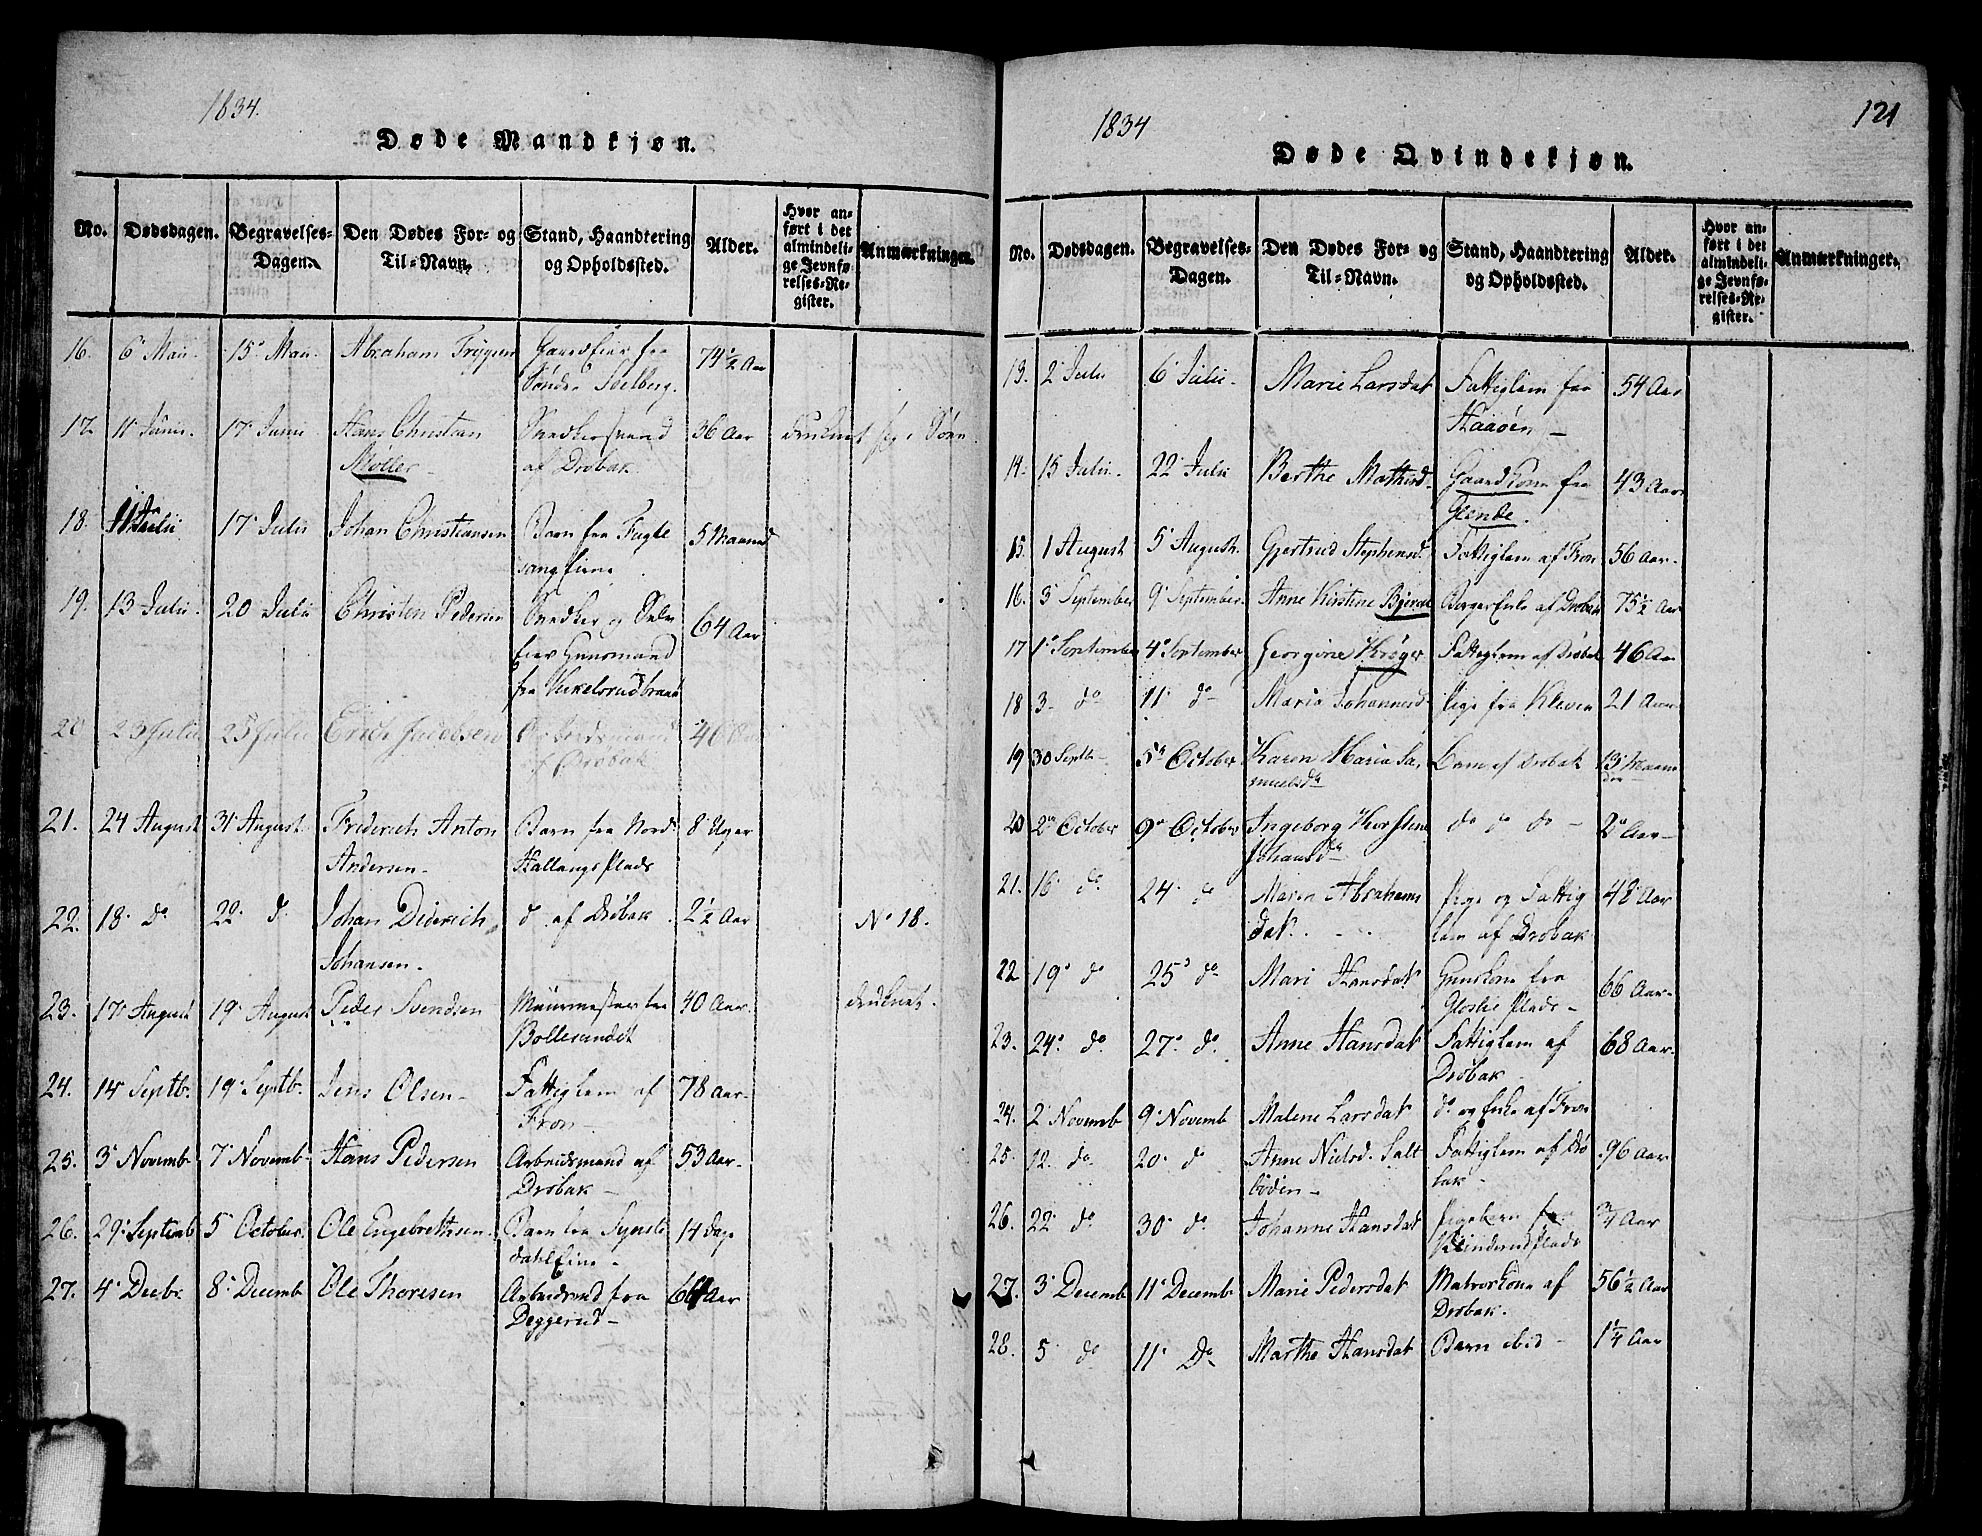 1834.
Døde Mandkjøn.
No. Dødsdagen. Begravelses-Dagen. Den Dødes For- og Til-Navn. Stand, Haandtering og Opholdssted. Alder. Hvor anført i det almindelige Jevnførelses-Register. Anmærkninger.
16. 6 Mai. 15 Mai. Abraham Trygsen Gaardeier fra 74 1/2 Aar
Søndre
17. 11 Junii. 17 Junii Hans Christian Snedkersvend 36 Aar druknet
Møller af Drøbak
18. 11 Julii 17 Julii Johan Christiansen Barn fra Fugle 5 Maaned
sang Eiene
19. 13 Julii. 20 Julii Christen Pedersen Snedker og Selv 64 Aar
eier Huusmand
fra
20 23 Julii 25 Julii Erids Jacobsen Arbeidsmand 40 Aar
af Drøbak
21. 24 August 31 August Friderich Anton Barn fra Nord 8 Uger
Andersen. Hallangs Plads
22. 18. do 22. do Johan Diderich do af Drøbak. 2 1/2 Aar No 18.
Johansen.
23. 17 August 19 August Peder Svendsen Muurmester fra 40 Aar. druknet.
Bollerundet
24. 14 Septb. 19 Septb. Jens Olsen Fattiglem af 78 Aar.
Fron
25. 3 Novemb 7 Novemb Hans Pedersen Arbeidsmand af 53 Aar.
Drøbak
26. 29 Septemb 5 October. Ole Engebrettsen. Barn fra 14 Dage
dahl Eie
27. 4 Decbr. 8 Decemb Ole Thoresen Arbeidsmd fra 64 Aar
Deggerud
1834
121
Døde Qvindekjøn.
No. Dødsdagen. Begravelses-Dagen. Den Dødes For- og Til-Navn. Stand, Haandtering og Opholdssted. Alder. Hvor anført i det almindelige Jevnførelses-Register. Anmærkninger.
13. 2 Julii 6 Julii. Marie Larsdat Fattiglem fra 54 Aar
Haaøen
14. 15 Julii. 22 Julii Berthe Mathisd Gaardkone fra 43 Aar
Glende.
15. 1 August 5 August. Gjertrud Stephensd Fattiglem af Fron 56 Aar.
16. 3 September 9 September. Anne Kirstine Bjerche Borger Enke af Drøbak 75 1/2 Aar
17 1 September 4 September Georgine Krøger Fattiglem af Drøbak 46 Aar
18 3 do 11 do Maria Johannesd Pige fra Kleven 21 Aar
19 30 Septb 5 October Karen Maria Sa- Barn af Drøbak 13 Maane
muelsd der
20 2 October 9 October Ingeborg Kirstine do do do 2 Aar
Johansd
21. 16 do 24 do Maren Abrahams Pige og Fattig 48 Aar
dat. lem af Drøbak
22 19 do 25 do Mari Hansdat Huuskone fra 66 Aar
Plads
23. 24 do 27 do Anne Hansdat Fattiglem af 68 Aar
Drøbak
24. 2 Novemb 9 Novemb Malene Larsdat do og Enke af Fron
25. 12. do 20 do Anne Nielsd. Salt Fattiglem af Drø 96 Aar
boden bak
26. 22 do 30 do Johanne Hansdat Pigebarn fra 3/4 Aar
27. 3 Decemb 11 Decemb Marie Pedersdat Matroskone af 56 1/2 Aar
Drøbak.
28. 5 do 11 Do Marthe Hansdat Barn ibid 1 1/4 Aar